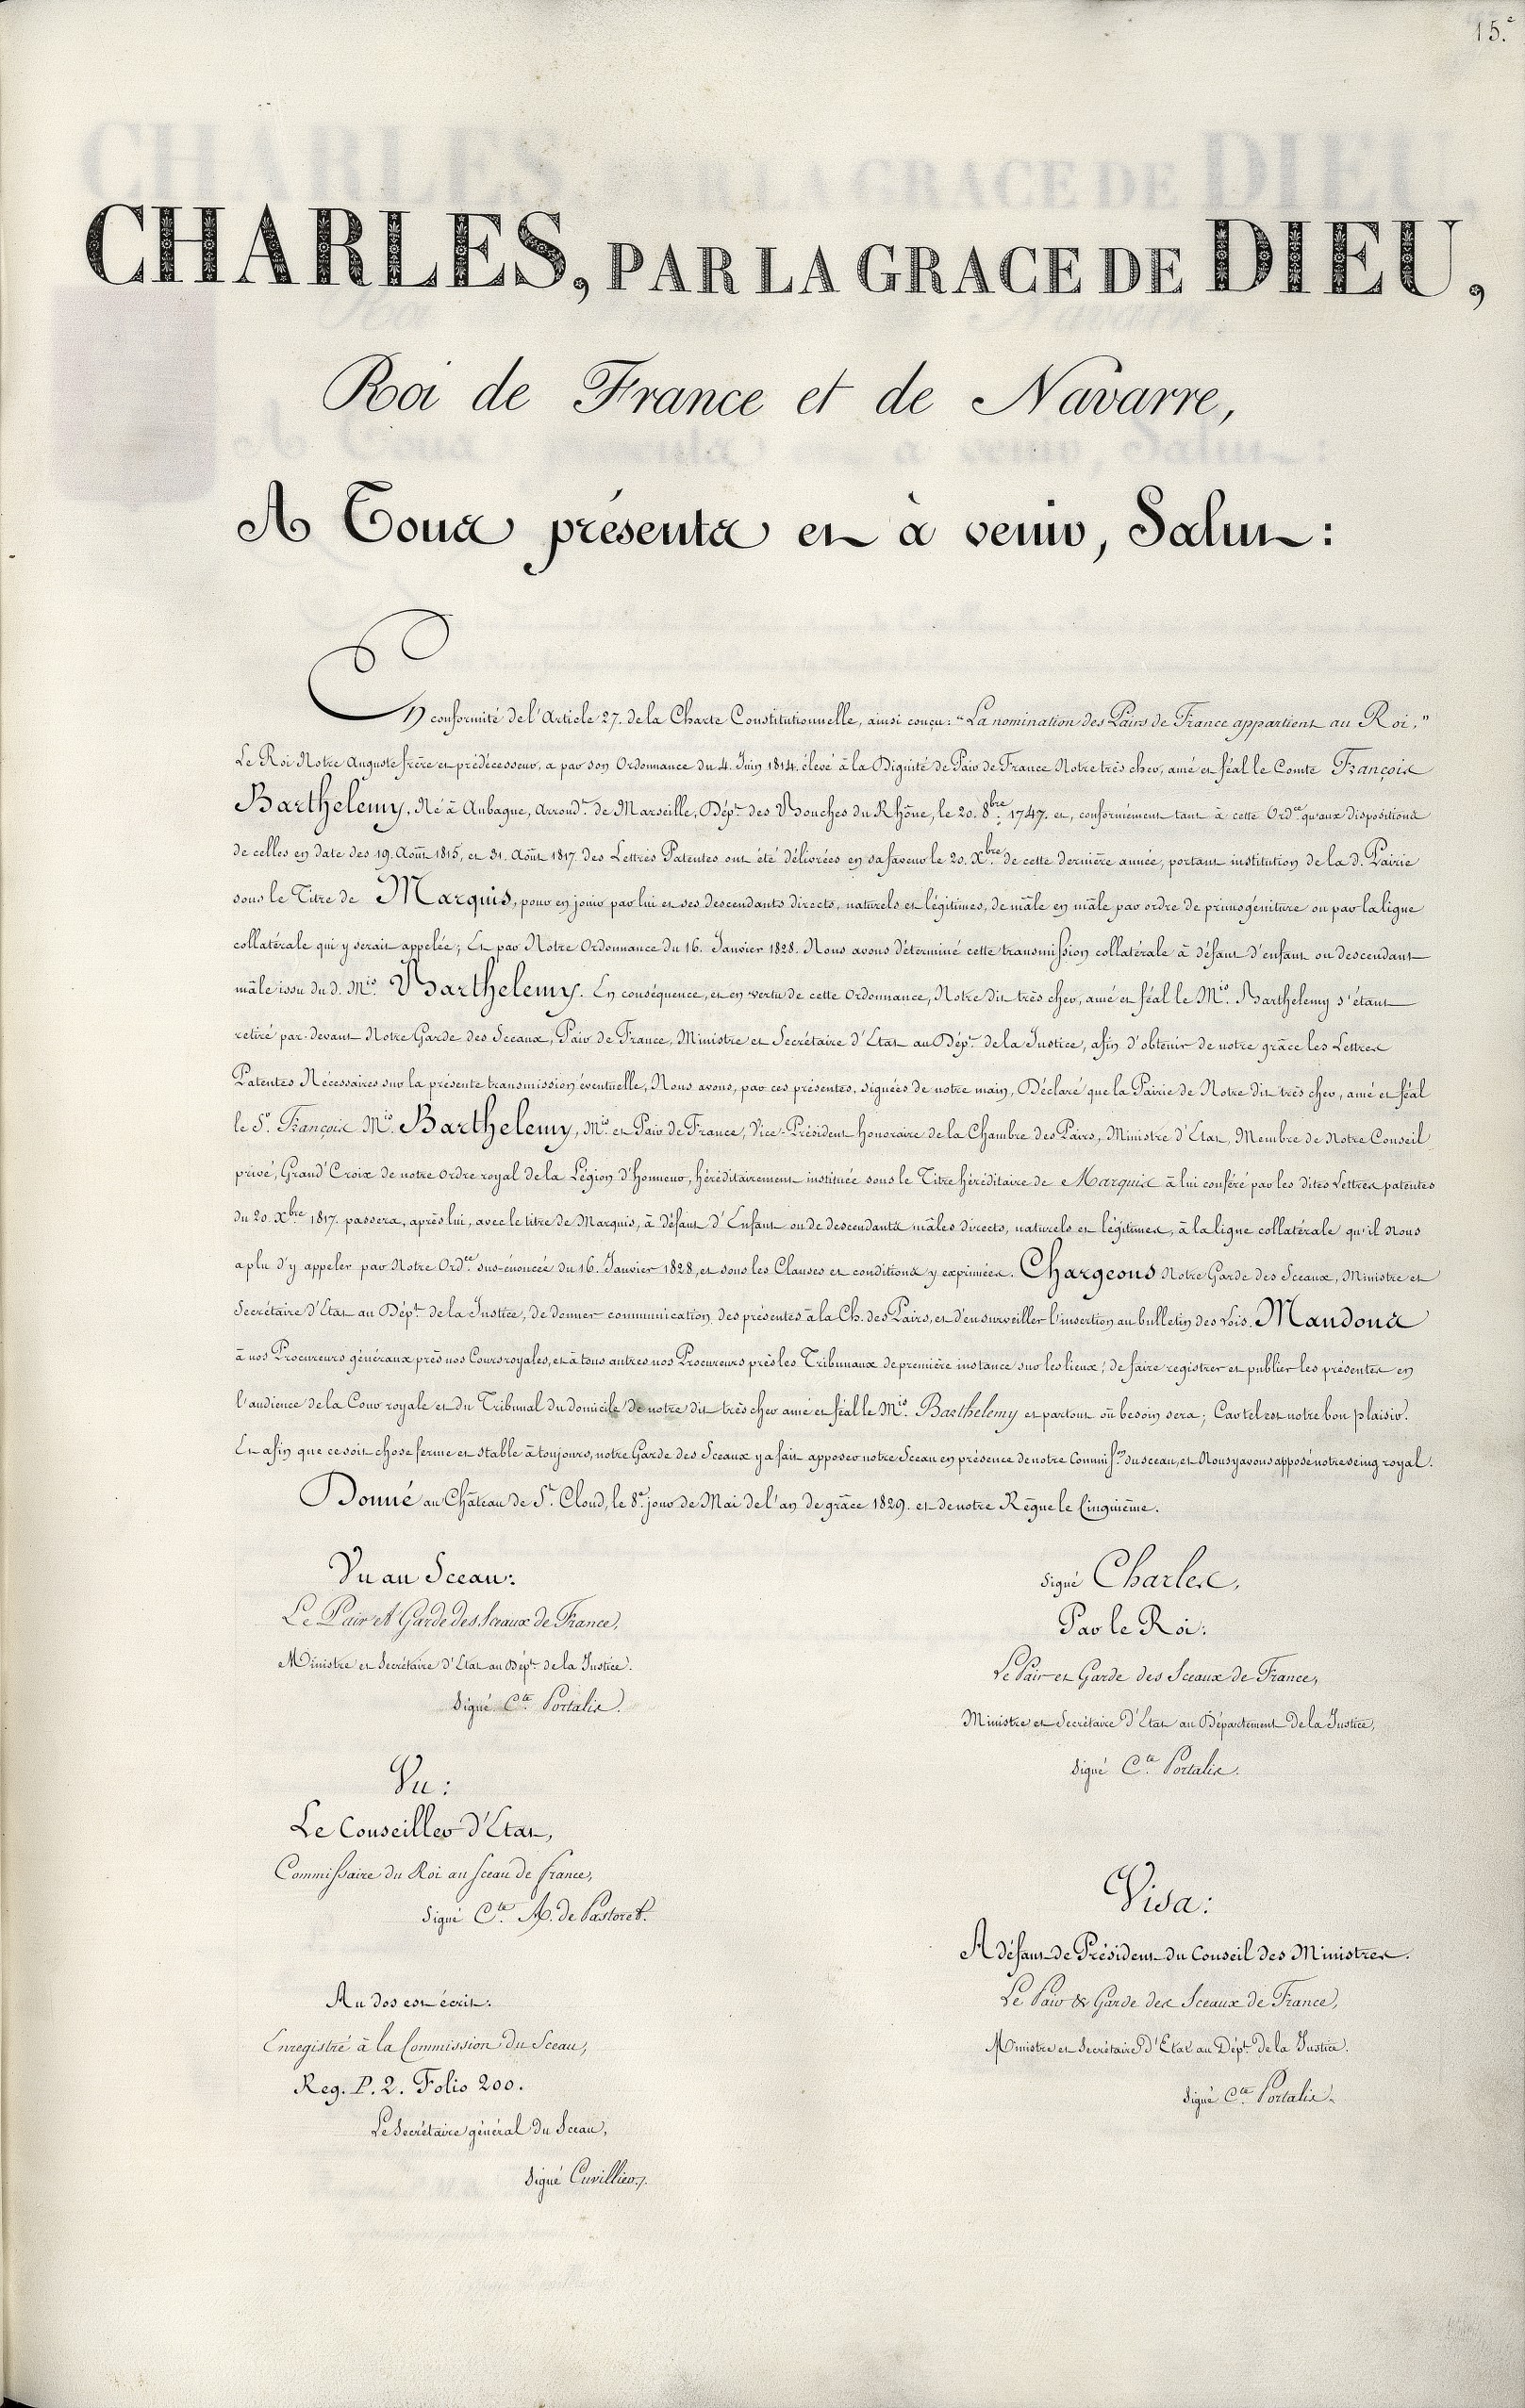 15.e
CHARLES, PAR LA GRACE DE DIEU,
Roi de France et de Navarre,
A Tous présents et à venir, Salut :
En conformité de l'Article 27. de la Charte Constitutionnelle, ainsi conçu : "La nomination des Pairs de France appartient au Roi."
Le Roi Notre Auguste frère et prédécesseur, a par son Ordonnance du 4. Juin 1814. élevé à la Dignité de Pair de France Notre très cher, amé et féal le Comte François
Barthélemy, Né à Aubagne, Arrond.t de Marseille, Dép.t des Bouches du Rhône, le 20. 8.bre 1747. et, conformément tant à cette Ord.ce qu'aux dispositions
de celles en date des 19. Août 1815, et 31. Août 1817. des Lettres Patentes ont été délivrées en sa faveur le 20. X.bre de cette dernière année, portant institution de la d. Pairie
sous le Titre de Marquis, pour en jouir par lui et ses descendants directs, naturels et légitimes, de mâle en mâle par ordre de primogéniture ou par la ligne
collatérale qui y serait appelée ; Et par Notre Ordonnance du 16. Janvier 1828. Nous avons déterminé cette transmission collatérale à défaut d'enfant ou descendant
mâle issu du d. M.is Barthelemy. En conséquence, et en vertu de cette Ordonnance, Notre dit très cher, amé et féal le M.is Barthelemy s'étant
retiré par-devant Notre Garde des Sceaux, Pair de France, Ministre et Secrétaire d'Etat au Dép.t de la Justice, afin d'obtenir de notre grâce les Lettres
Patentes Nécessaires sur la présente transmission éventuelle, Nous avons, par ces présentes, signées de notre main, Déclaré que la Pairie de Notre dit très cher, amé et féal
le S.r François M.is Barthelemy, M.is et Pair de France, Vice-Président honoraire de la Chambre des Pairs, Ministre d'Etat, Membre de Notre Conseil
privé, Grand' Croix de notre Ordre royal de la Légion d'honneur, héréditairement instituée sous le Titre héréditaire de Marquis à lui conféré par les dites Lettres patentes
du 20. X.bre 1817. passera, après lui, avec le titre de Marquis, à défaut d'Enfant ou de descendants mâles directs, naturels et légitimes, à la ligne collatérale qu'il Nous
a plu d'y appeler par Notre Ord.ce sus-énoncée du 16. Janvier 1828, et sous les Clauses et conditions y exprimées. Chargeons Notre Garde des Sceaux, Ministre et
Secrétaire d'Etat au Dép.t de la Justice, de donner communication des présentes à la Ch. des Pairs, et d'en surveiller l'insertion au bulletin des Lois. Mandons
à nos Procureurs généraux près nos Cours royales, et à tous autres nos Procureurs près les Tribunaux de première instance sur les lieux, de faire registrer et publier les présentes en
l'audience de la Cour royale et du Tribunal du domicile de notre dit très cher amé et féal le M.is Barthelemy et partout où besoin sera ; Car tel est notre bon plaisir.
Et afin que ce soit chose ferme et stable à toujours, notre Garde des Sceaux y a fait apposer notre Sceau en présence de notre Commiss.on du sceau, et Nous y avons apposé notre seing royal.
Donné au Château de S.t Cloud, le 8.e jour de Mai de l'an de grâce 1829. et de notre Règne le Cinquième.
Vu au Sceau :
Le Pair et Garde des Sceaux de France,
Ministre et Secrétaire d'Etat au Dép.t de la Justice.
Signé C.te Portalis.
Vu :
Le Conseiller d'Etat,
Commissaire du Roi au Sceau de france,
Signé C.te A. de Pastoret.
Au dos est écrit :
Enregistré à la Commission du Sceau,
Reg. P. 2. Folio 200.
Le Secrétaire général du Sceau,
Signé Cuvillier.
Signé Charles,
Par le Roi :
Le Pair et Garde des Sceaux de France,
Ministre et Secrétaire d'Etat au Département de la Justice,
Signé C.te Portalis.
Visa :
A défaut de Président du Conseil des Ministres.
Le Pair & Garde des Sceaux de France,
Ministre et Secrétaire d'Etat au Dép.t de la Justice.
Signé C.te Portalis.